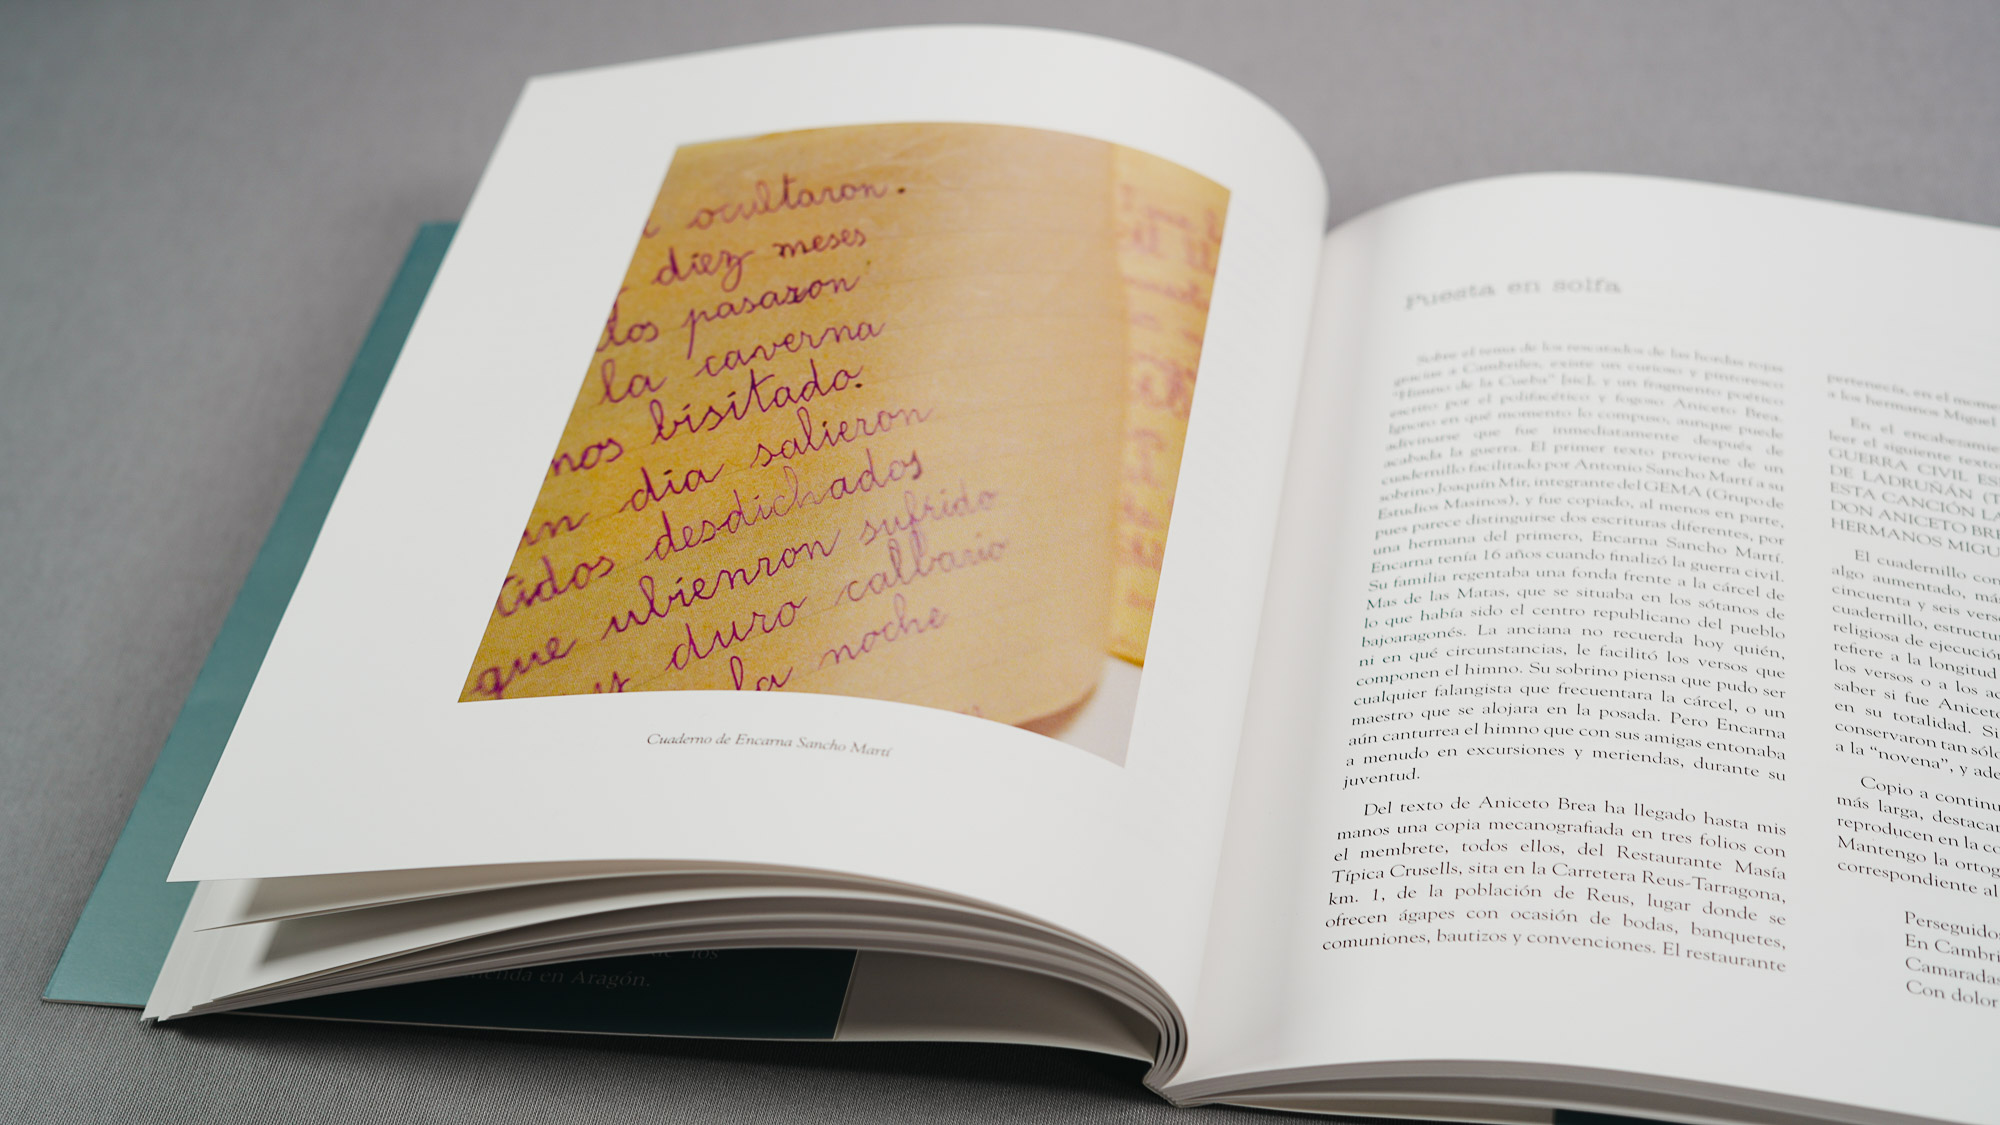 ocultaron.
diez meses
los pasaron
la caverna
nos bisitado.
un dia salieron
tidos desdichados
que ubienron sufrido
y duro calbario
la noche
Cuaderno de Encarna Sancho Martí
enda en Aragón.
Puesta en solfa
Sobre el tema de los rescatados de las hordas rojas
gracias a Cambriles, existe un curioso y pintoresco
“Himno de la Cueba” [sic], y un fragmento poético
escrito por el polifacético y fogoso Aniceto Brea.
Ignoro en qué momento lo compuso, aunque puede
adivinarse que fue inmediatamente después de
acabada la guerra. El primer texto proviene de un
cuadernillo facilitado por Antonio Sancho Martí a su
sobrino Joaquín Mir, integrante del GEMA (Grupo de
Estudios Masinos), y fue copiado, al menos en parte,
pues parece distinguirse dos escrituras diferentes, por
una hermana del primero, Encarna Sancho Martí.
Encarna tenía 16 años cuando finalizó la guerra civil.
Su familia regentaba una fonda frente a la cárcel de
Mas de las Matas, que se situaba en los sótanos de
lo que había sido el centro republicano del pueblo
bajoaragonés. La anciana no recuerda hoy quién,
ni en qué circunstancias, le facilitó los versos que
componen el himno. Su sobrino piensa que pudo ser
cualquier falangista que frecuentara la cárcel, o un
maestro que se alojara en la posada. Pero Encarna
aún canturrea el himno que con sus amigas entonaba
a menudo en excursiones y meriendas, durante su
juventud.
Del texto de Aniceto Brea ha llegado hasta mis
manos una copia mecanografiada en tres folios con
el membrete, todos ellos, del Restaurante Masía
Típica Crusells, sita en la Carretera Reus-Tarragona,
km. 1, de la población de Reus, lugar donde se
ofrecen ágapes con ocasión de bodas, banquetes,
comuniones, bautizos y convenciones. El restaurante
pertenecía, en el mome
a los hermanos Miguel
En el encabezamie
leer el siguiente texto
GUERRA CIVIL ES
DE LADRUÑÁN (T
ESTA CANCIÓN LA
DON ANICETO BRE
HERMANOS MIGU
El cuadernillo con
algo aumentado, má
cincuenta y seis vers
cuadernillo, estructu
religiosa de ejecución
refiere a la longitud
los versos o a los ac
saber si fue Aniceto
en su totalidad. Si
conservaron tan sólo
a la “novena”, y ade
Copio a continu
más larga, destacan
reproducen en la co
Mantengo la ortog
correspondiente al
Perseguidos
En Cambri
Camaradas
Con dolor